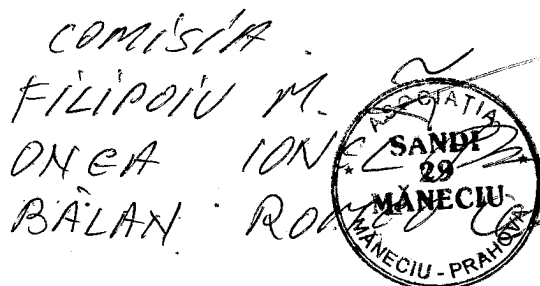 COMISIA
FILIPOIU M.
ONEA IONEL
BĂLAN ROMEO
ASOCIAȚIA
SANDI
29
MĂNECIU
MĂNECIU - PRAHOVA